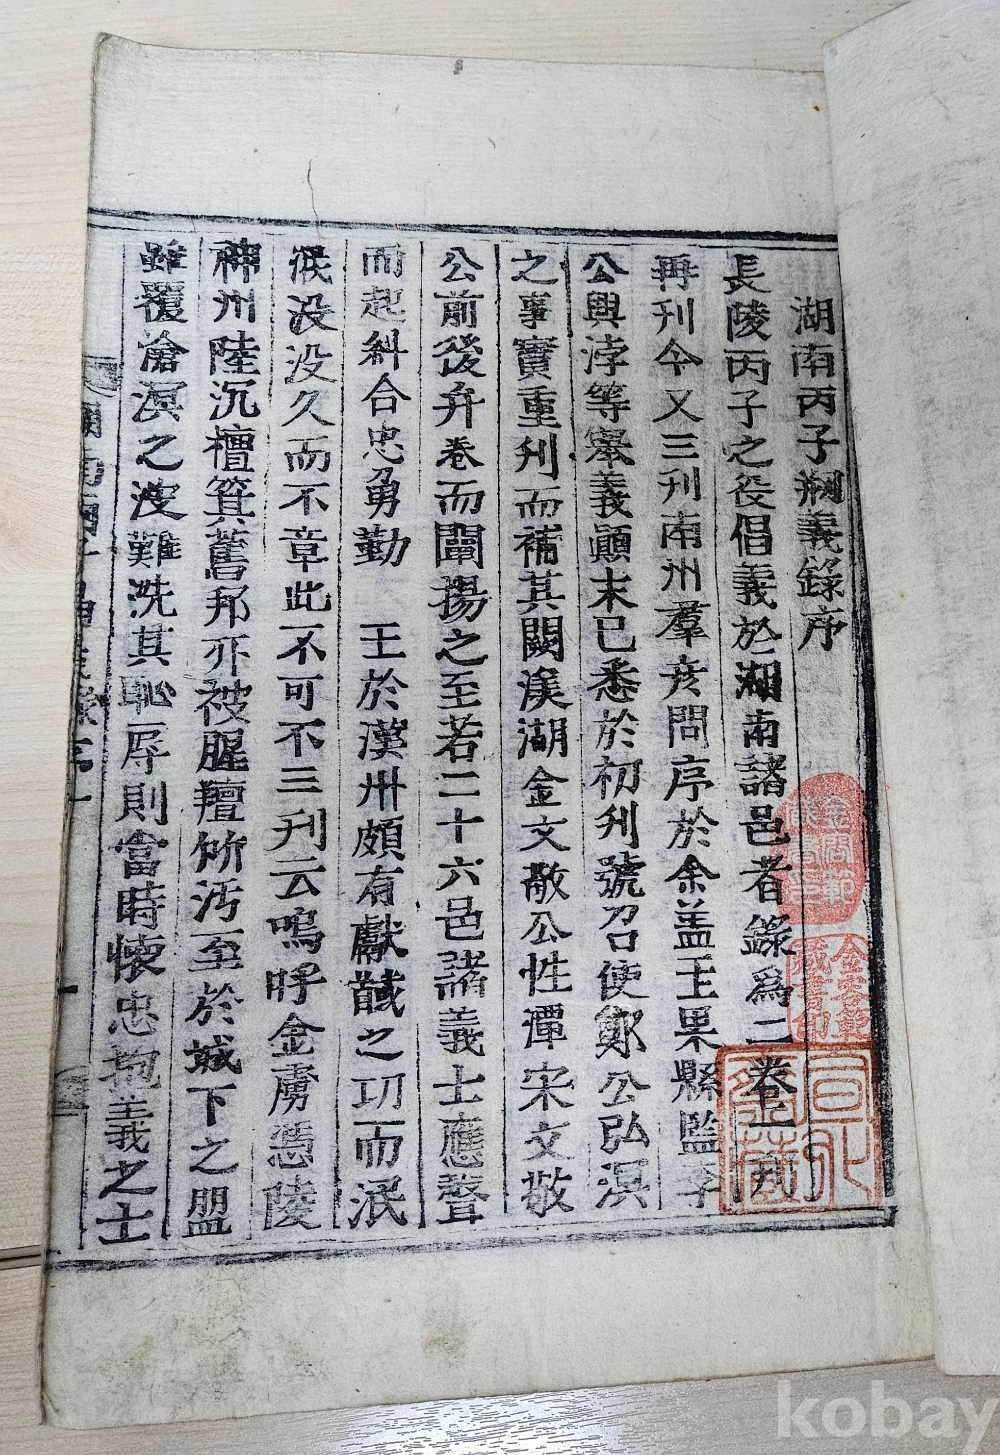 湖南丙子倡義錄序
長陵丙子之役倡義於湖南諸邑者錄爲二卷上
再刊今又三刊南州羣彦問序於余盖玉果縣監李
公興浡等擧義顚末已悉於初刊號召使鄭公弘溟
之事實重刊而補其闕渼湖金文敬公性潭宋文敬
公前後弁卷而闡揚之至若二十六邑諸義士應聲
而起糾合忠勇勤 王於漢州頗有獻馘之功而泯
泯沒沒久而不章此不可不三刊云嗚呼金虜憑陵
神州陸沉檀箕舊邦亦被腥羶所汚至於城下之盟
雖覆滄溟之波難洗其恥辱則當時懷忠抱義之士
湖南丙子倡義錄序 一
藏書印
kobay